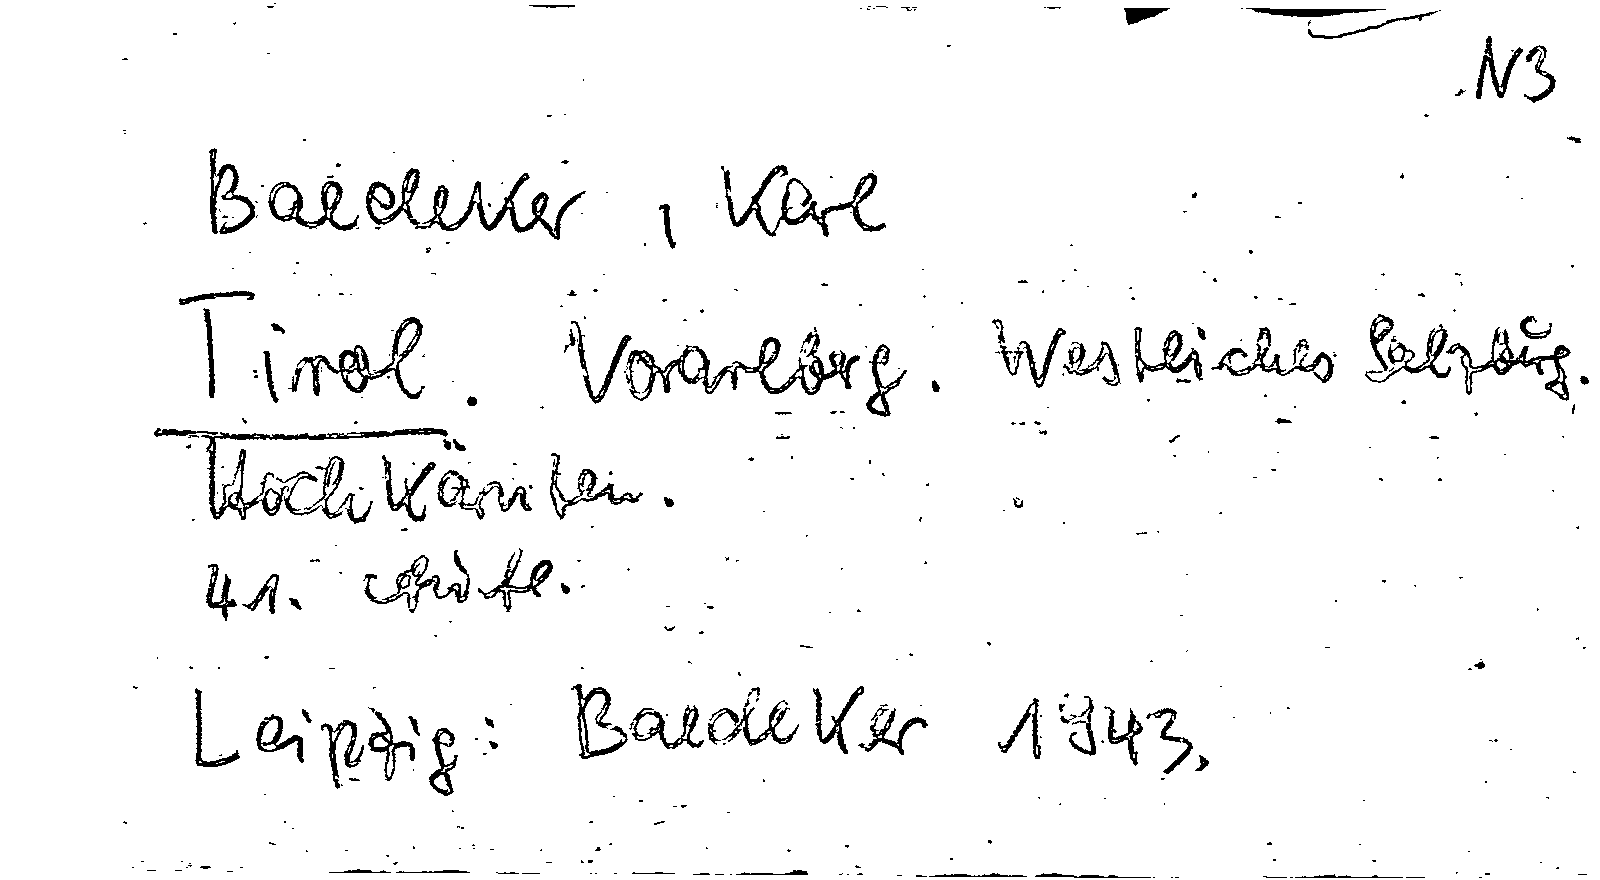 N3
Baedeker, Karl
Tirol. Vorarlberg. Westliches Salzburg.
Hochkärnten.
41. Aufl.
Leipzig: Baedeker 1943.